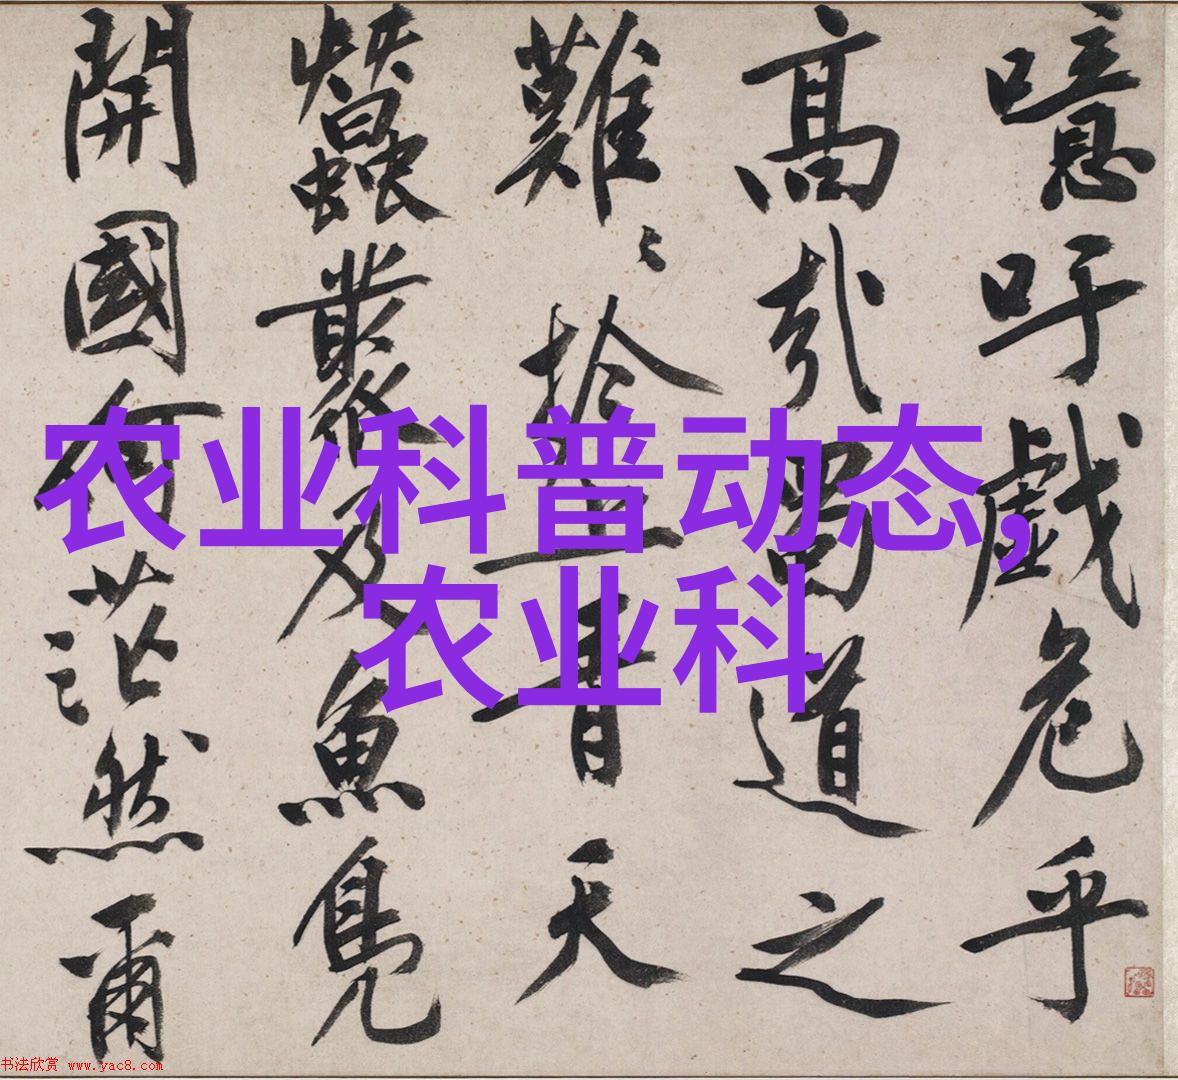 噫吁戲危乎
高哉蜀道之
難〻於上青天
蠶叢及魚鳧
開國何茫然爾
农业科普动态,
农业科
书法欣赏 www.yac8.com